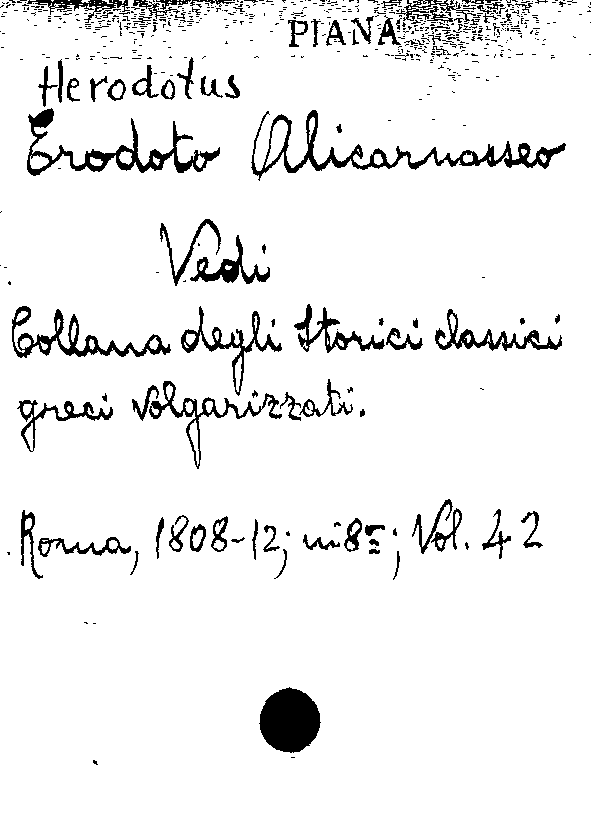 PIANA
Herodotus
Erodoto Alicarnasseo
Vedi
Collana degli Storici classici
greci volgarizzati.
Roma, 1808-12; in 8º; Vol. 42